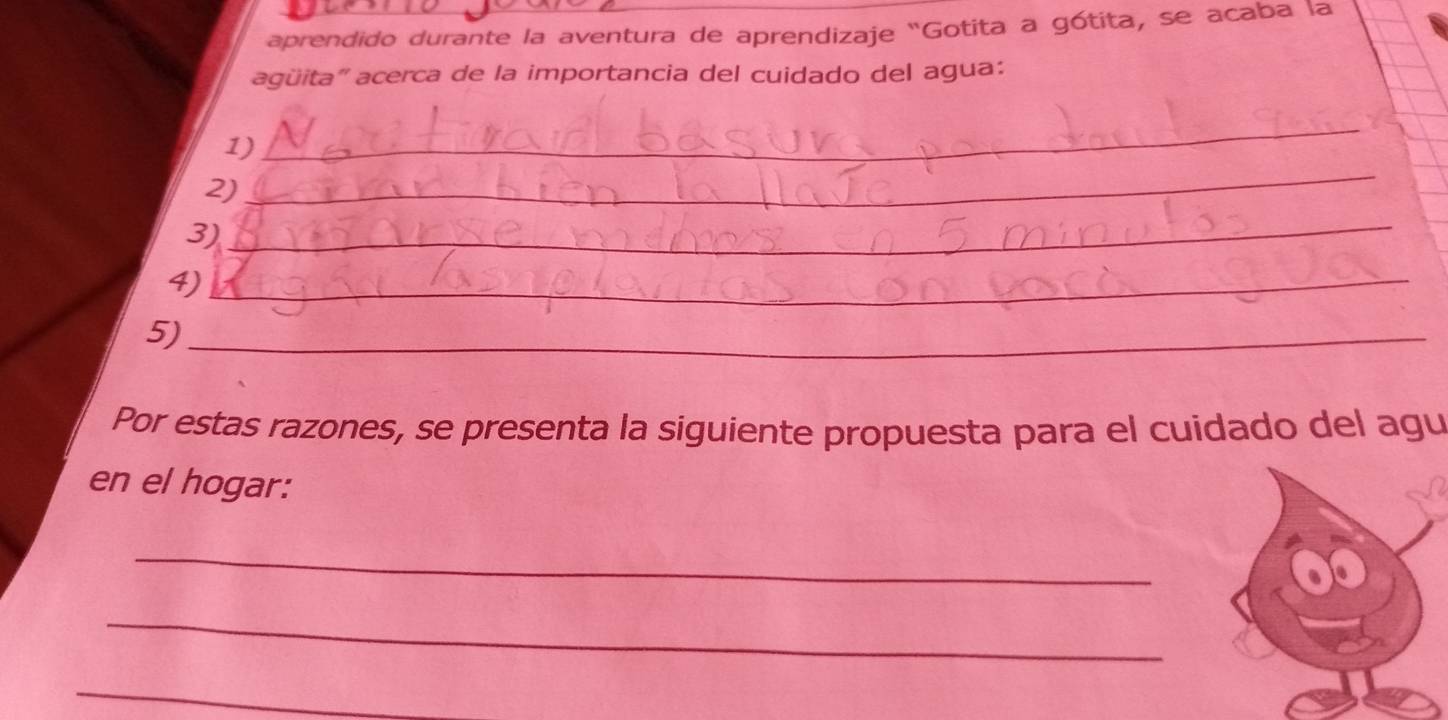 aprendido durante la aventura de aprendizaje "Gotita a gótita, se acaba la
agüita" acerca de la importancia del cuidado del agua:
1) No tirar basura por donde
2) Cerrar bien la llave
3) menos en 5 minutos
4) Regar las plantas con poca agua
5)
Por estas razones, se presenta la siguiente propuesta para el cuidado del agu
en el hogar: